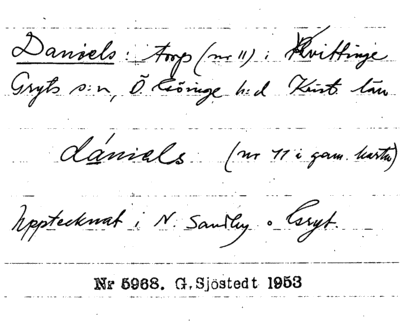 Daniels: torp (nr 11) i Kvittinge
Gryts s:n, Ö Göinge h:d Krist. län
dániels (nr 11 i gam. karta)
Upptecknat i N. Sandby o Gryt.
Nr 5968. G. Sjöstedt 1953